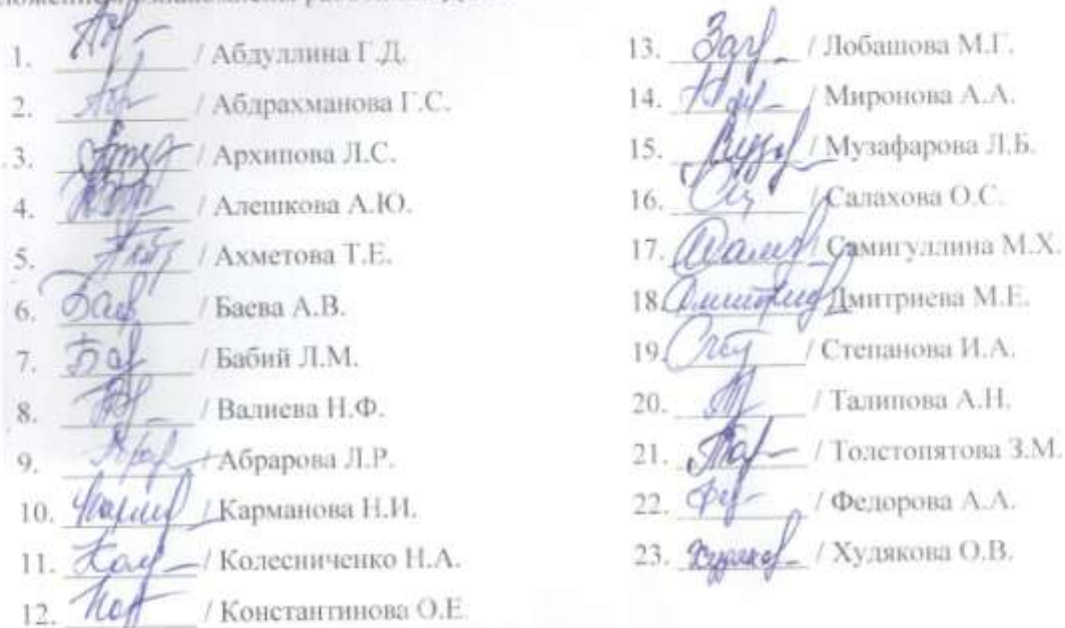 ознакомлены
1. / Абдуллина Г.Д.
2. / Абдрахманова Г.С.
3. / Архипова Л.С.
4. / Алешкова А.Ю.
5. / Ахметова Т.Е.
6. / Баева А.В.
7. / Бабий Л.М.
8. / Валиева Н.Ф.
9. / Абрарова Л.Р.
10. / Карманова Н.И.
11. / Колесниченко Н.А.
12. / Константинова О.Е.
13. / Лобашова М.Г.
14. / Миронова А.А.
15. / Музафарова Л.Б.
16. / Салахова О.С.
17. / Самигуллина М.Х.
18. Дмитриева М.Е.
19. / Степанова И.А.
20. / Талипова А.Н.
21. / Толстопятова З.М.
22. / Федорова А.А.
23. / Худякова О.В.